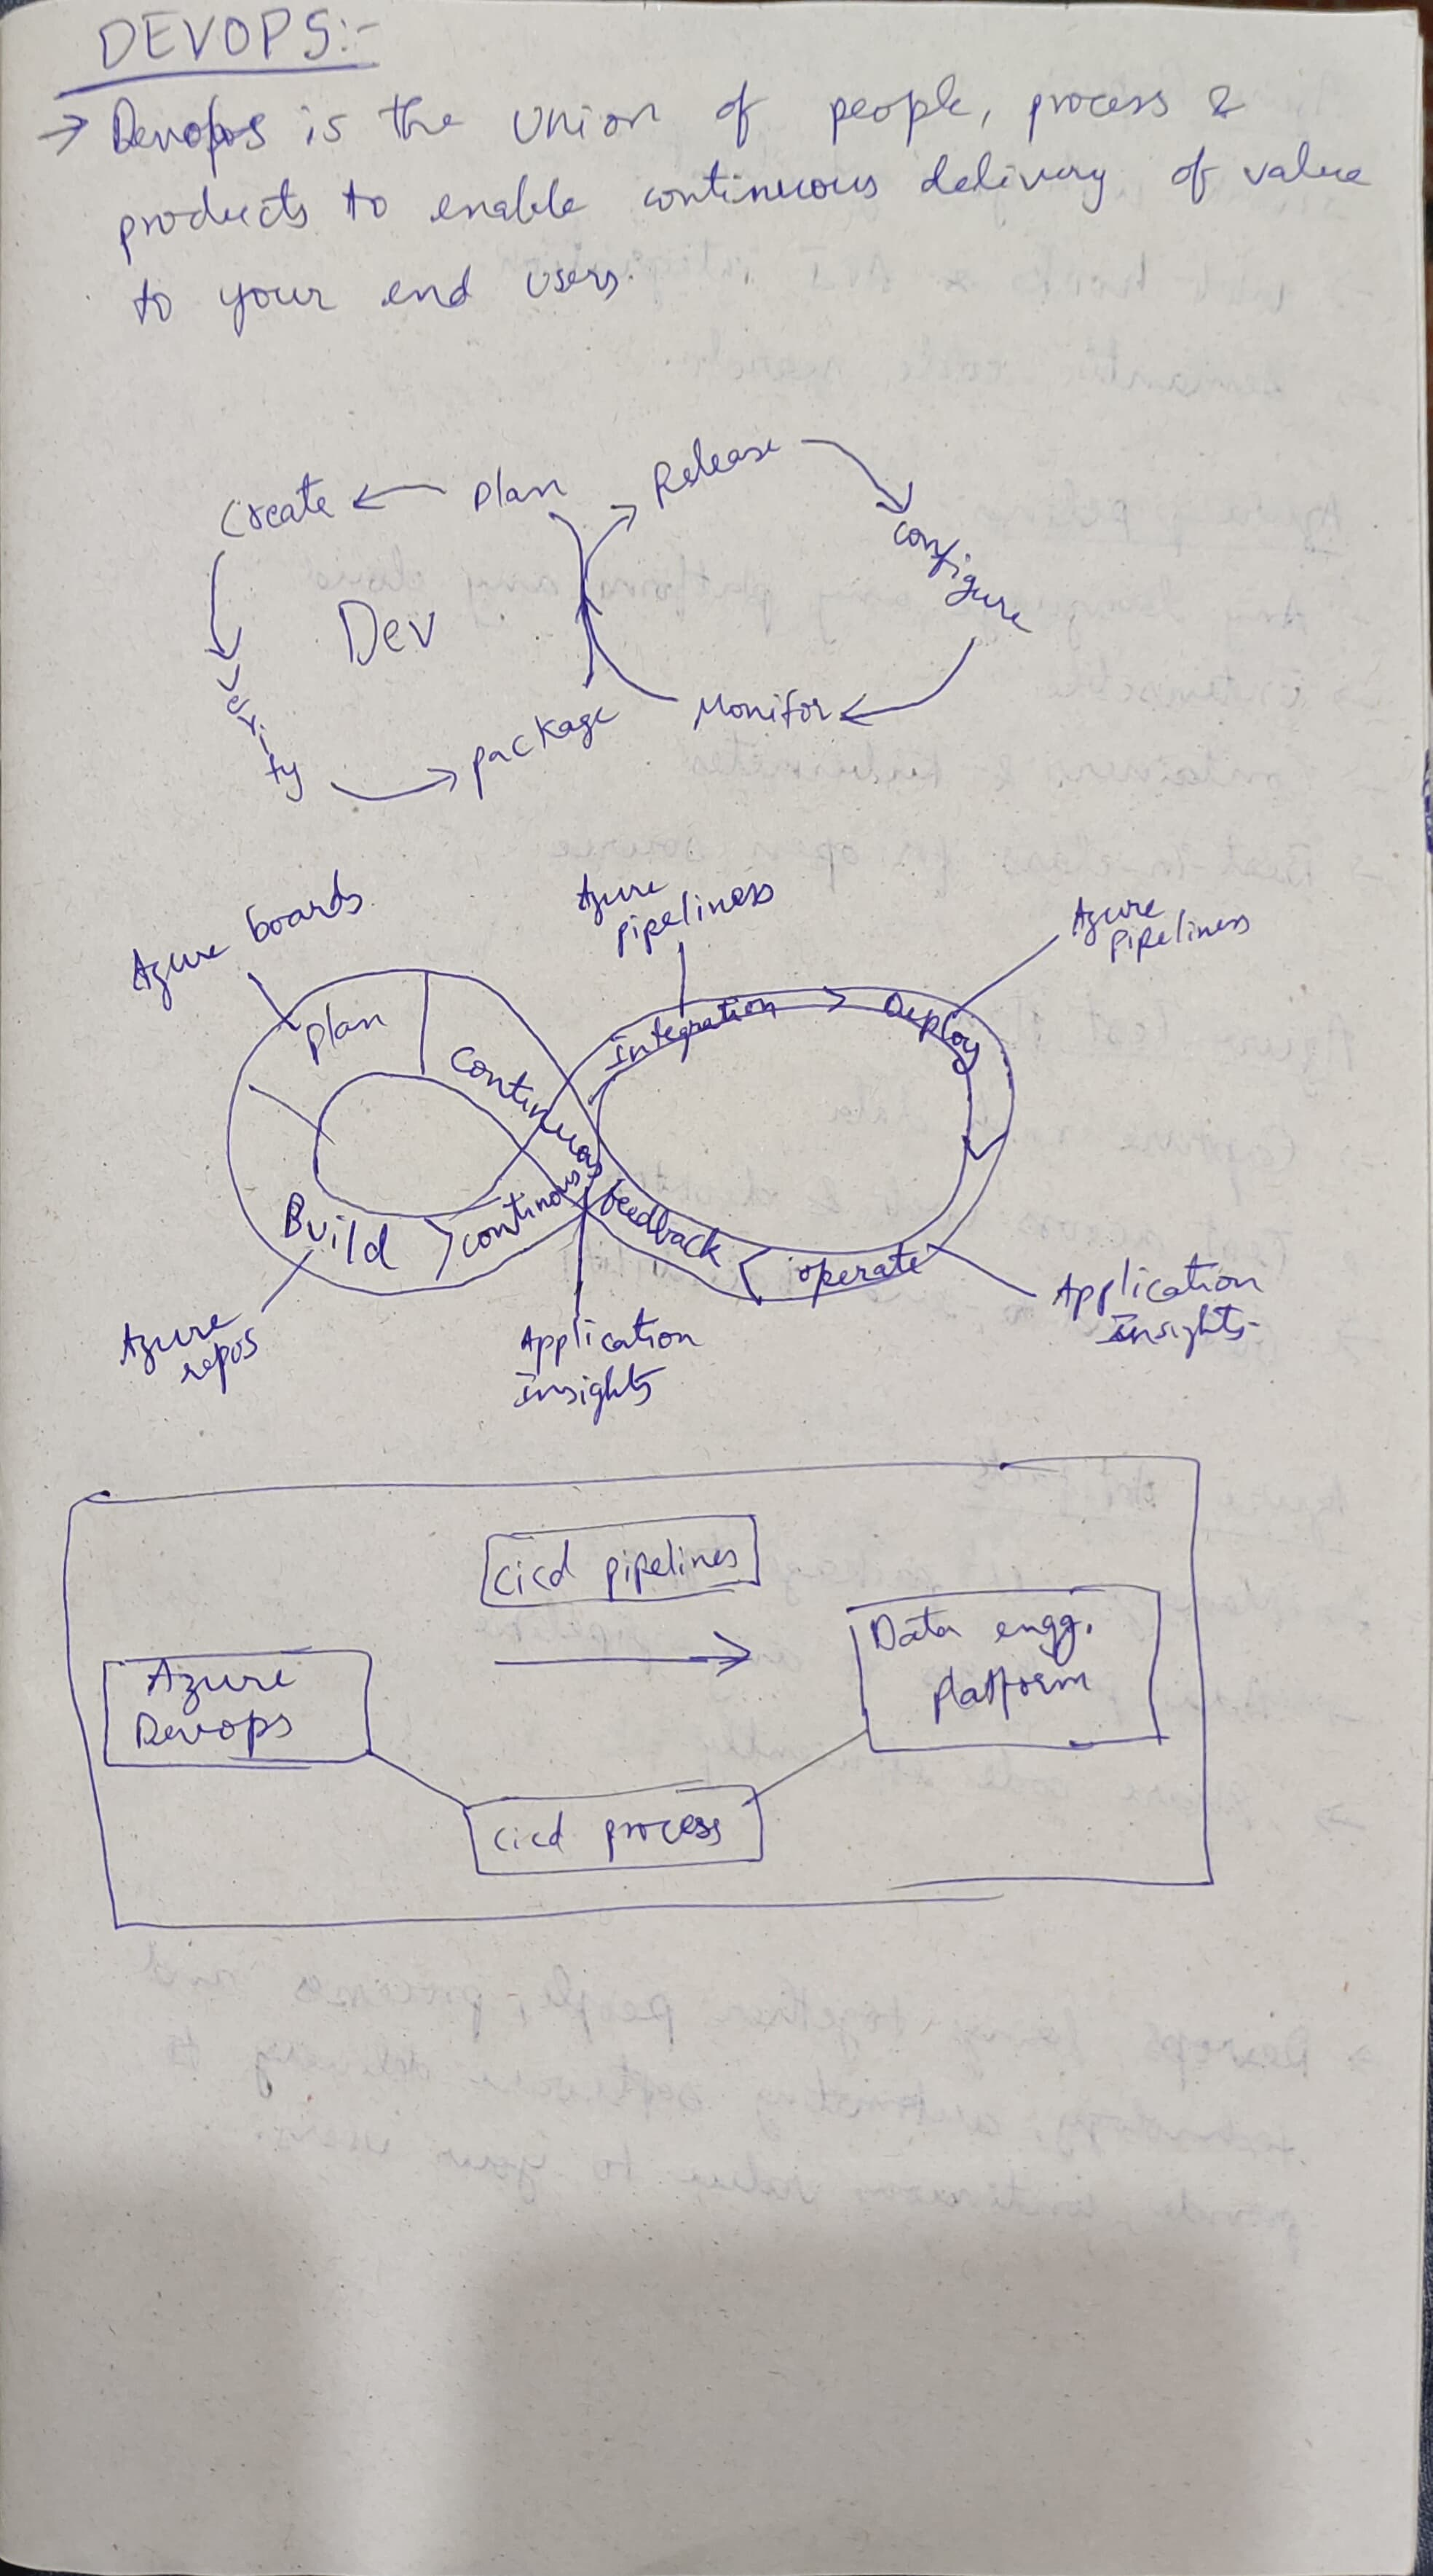 DEVOPS:-
→ Devops is the union of people, process &
products to enable continuous delivery of value
to your end users.
Create ← Plan
Release
configure
Dev
Verify
package
Monitor
Azure boards
Azure
pipeliness
Azure
pipeliness
Plan
Continuous
integration
Deploy
Build
continous
feedback
operate
Azure
repos
Application
insights
Application
insights
cicd pipelines
Azure
Devops
Data engg.
platform
cicd process